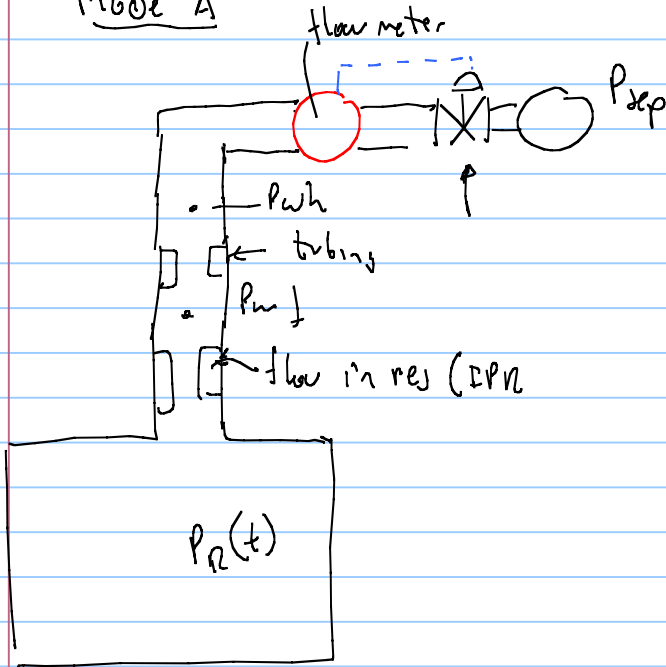 Mode A
flow meter
Psep
Pwh
tubing
Pwf
flow in res (IPR
PR(t)